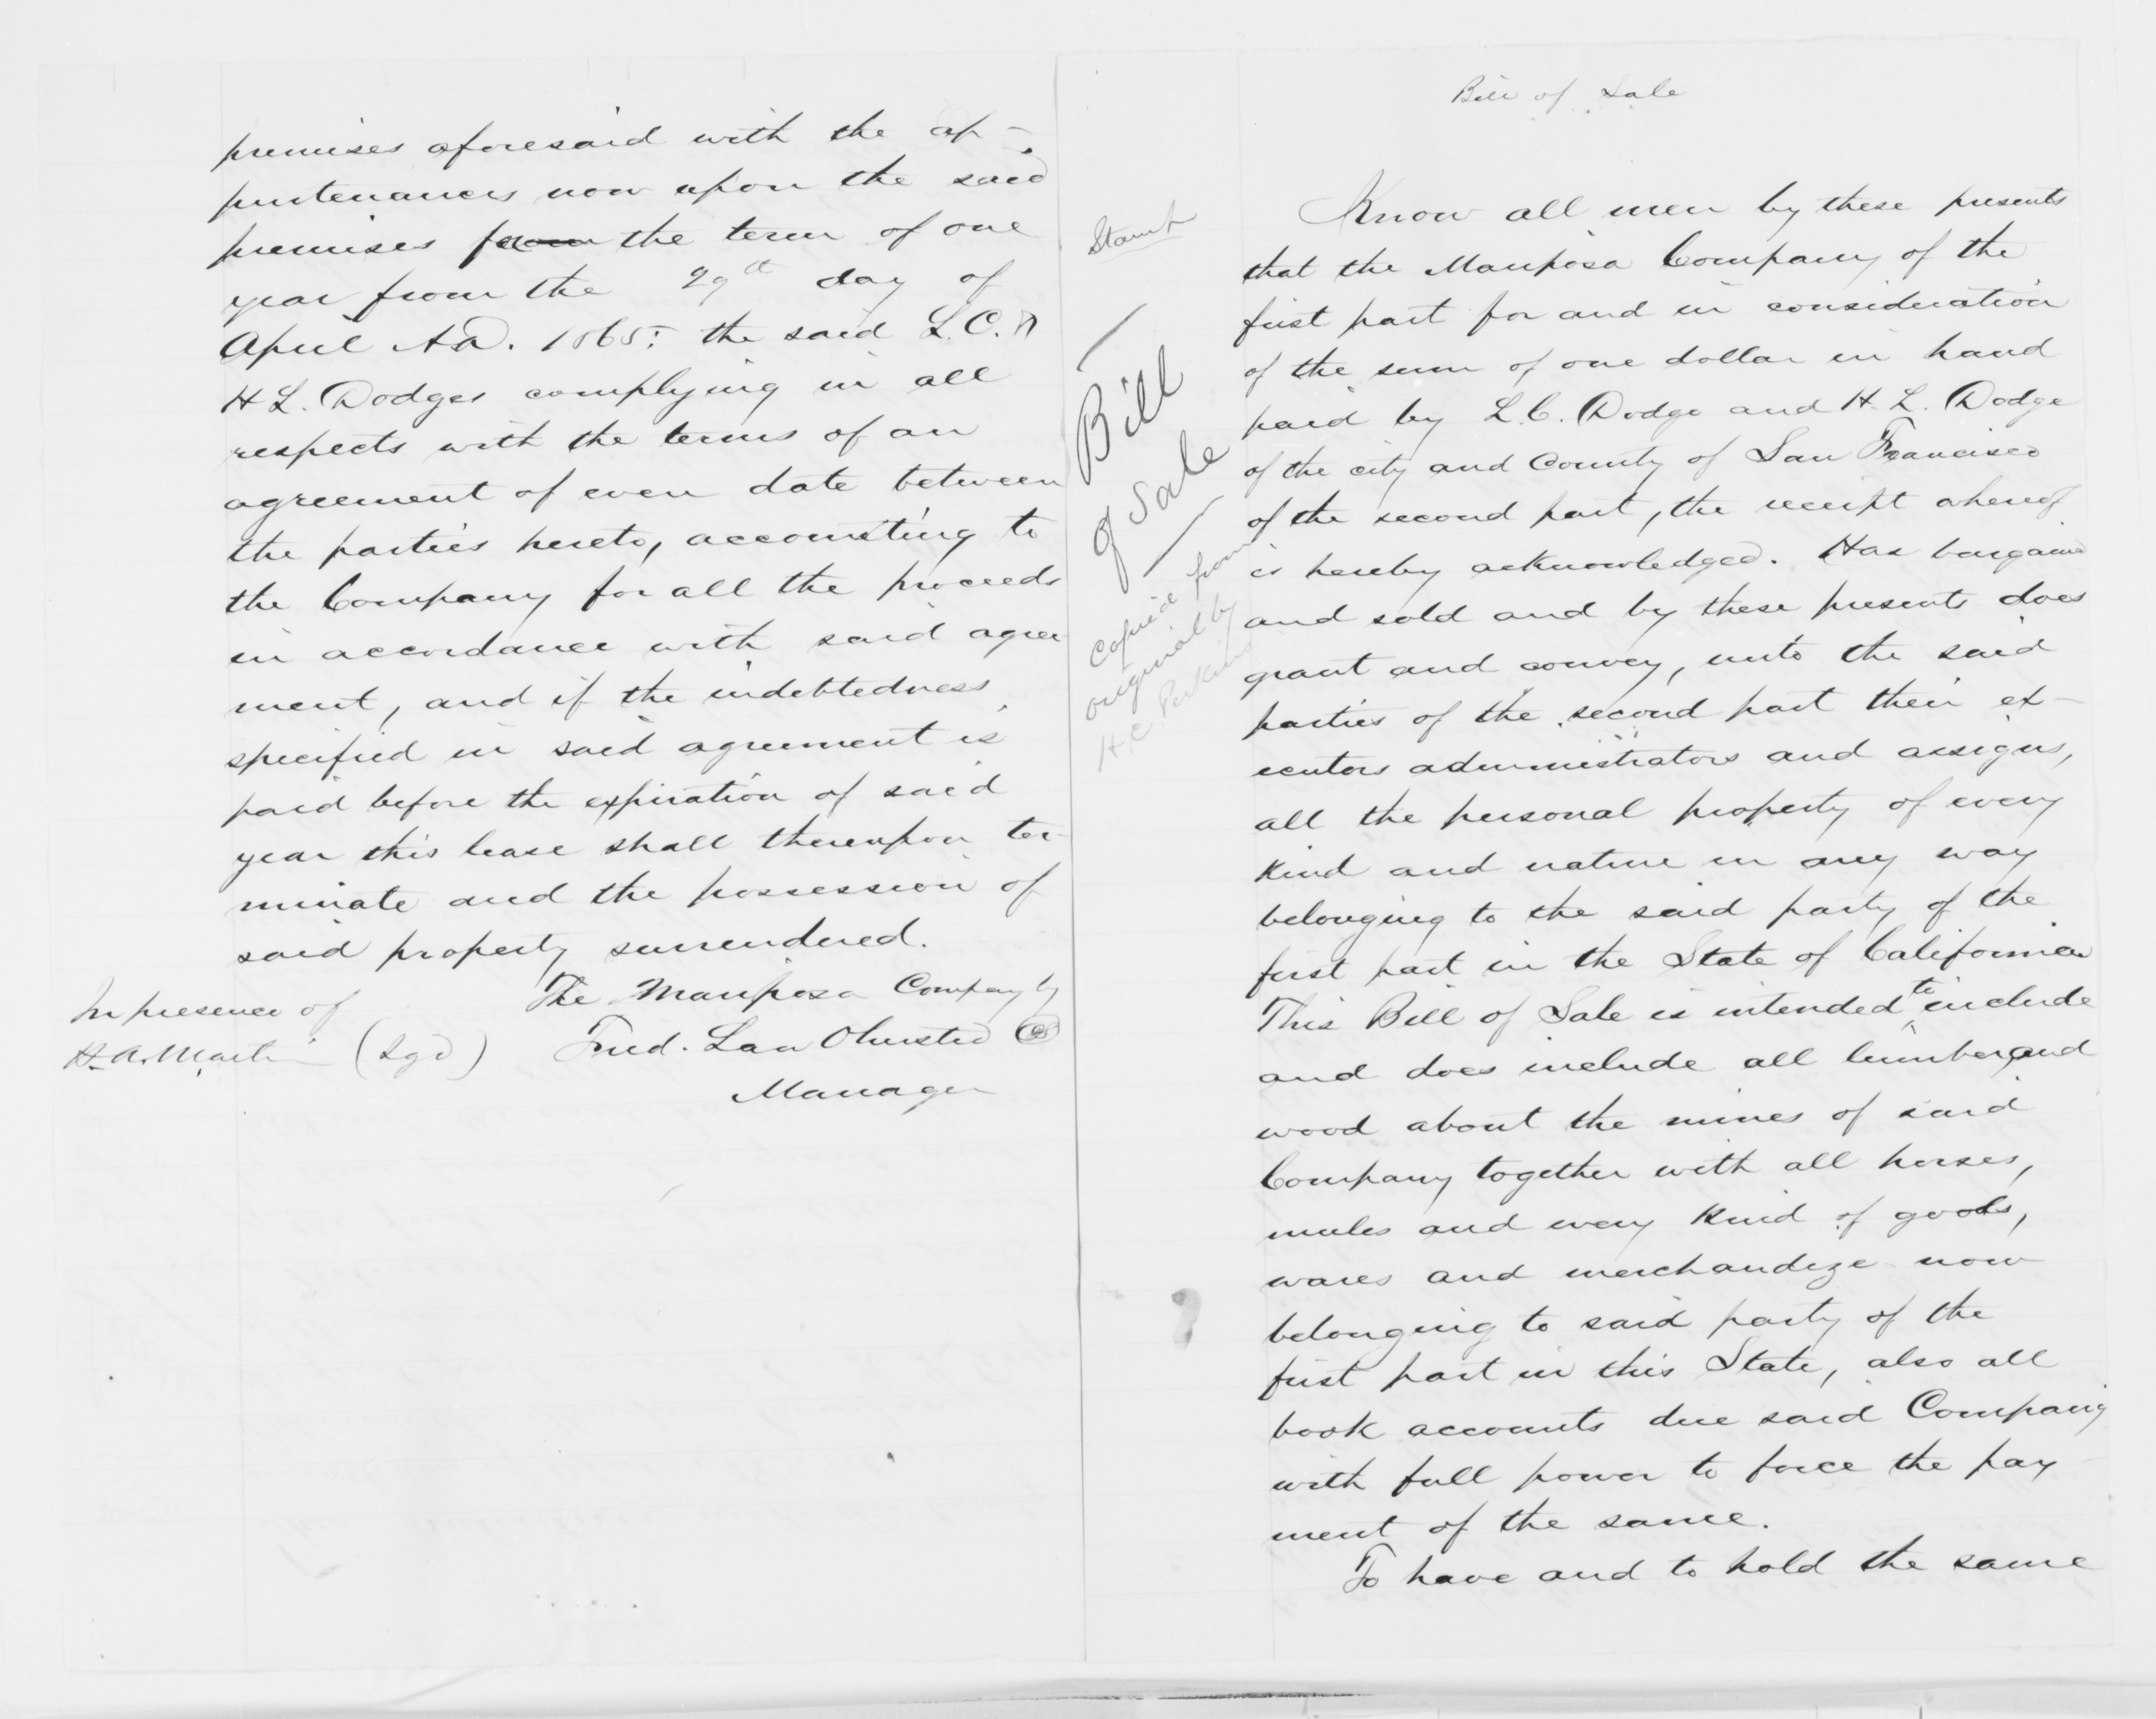 premises aforesaid with the ap-
purtenances now upon the said
premises for the term of one
year from the 29th day of
April A.D. 1865: the said L.C. &
H L. Dodges complying in all
respects with the terms of an
agreement of even date between
the parties hereto, accounting to
the Company for all the proceeds
in accordance with said agree
ment, and if the indebtedness
specified in said agreement is
paid before the expiration of said
year this lease shall thereupon ter-
minate and the possession of
said property surrendered.
In presence of
H. A. Martin
The Mariposa Company by
(Sgd) Fred. Law Olmsted
Manager
Stamp
Bill
of Sale
Copied from
original by
H.C. Perkins
Bill of Sale
Know all men by these presents
that the Mariposa Company of the
first part for and in consideration
of the sum of one dollar in hand
paid by L.C. Dodge and H. L. Dodge
of the city and County of San Francisco
of the second part, the receipt whereof
is hereby acknowledged. Has bargained
and sold and by these presents does
grant and convey, unto the said
parties of the second part their ex-
ecutors administrators and assigns,
all the personal property of every
kind and nature in any way
belonging to the said party of the
first part in the State of California
This Bill of Sale is intended to include
and does include all lumber and
wood about the mines of said
Company together with all horses,
mules and every kind of goods,
wares and merchandize now
belonging to said party of the
first part in this State, also all
book accounts due said Company
with full power to force the pay
ment of the same.
To have and to hold the same